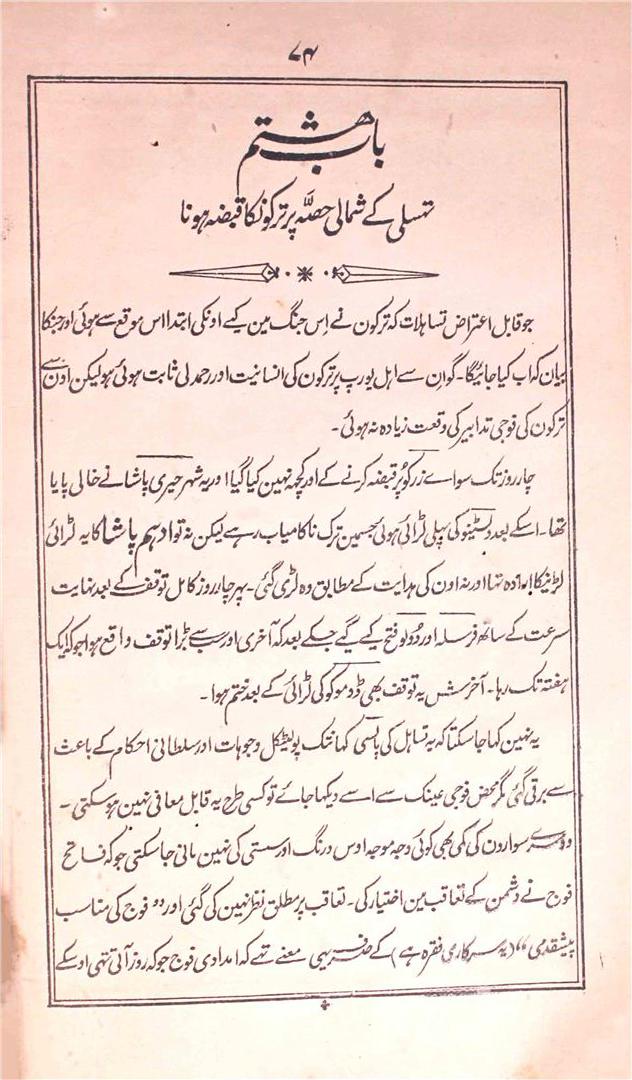 ۷۴
باب ہشتم
تہسلی کے شمالی حصّہ پر ترکونکا قبضہ ہونا
جو قابل اعتراض تساہلات کہ ترکون نے اِس جنگ مین کیے اونکی ابتدا اس موقع سے ہوئی اور جنکا
بیان کہ اب کیا جائیگا۔ گو ان سے اہل یورپ پر ترکون کی انسانیت اور رحمدلی ثابت ہوئی ہو لیکن اون سے
ترکون کی فوجی تدابیر کی وقعت زیادہ نہ ہوئی۔
چار روز تک سواے زرکو پر قبضہ کرنے کے اور کچہہ نہین کیا گیا اور یہ شہر حیری پاشا نے خالی پایا
تھا۔ اسکے بعد ولسٹینو کی پہلی لڑائی ہوئی جسمین ترک ناکامیاب رہے لیکن نہ تو ادہم پاشا کا یہ لڑائی
لڑنیکا ارادہ تہا اور نہ اون کی ہدایت کے مطابق وہ لڑی گئی۔ پہر چار روز کامل توقف کے بعد نہایت
سرعت کے ساتھ فرسلہ اور وولو فتح کیے گیے جسکے بعد کہ آخری اور سب سے بڑا توقف واقع ہوا جو کہ ایک
ہفتہ تک رہا۔ آخرش یہ توقف بھی ڈوموکو کی لڑائی کے بعد ختم ہوا۔
یہ نہین کہا جا سکتا کہ یہ تساہل کی پالسی کہانتک پولیٹکل وجوہات اور سلطانی احکام کے باعث
سے برتی گئی مگر محض فوجی عینک سے اسے دیکہا جاے تو کسی طرح یہ قابل معافی نہین ہو سکتی۔
دوسرے سوارون کی کمی بھی کوئی وجہ موجہ اوس درنگ اور سستی کی نہین مانی جا سکتی جو کہ فاتح
فوج نے دشمن کے تعاقب مین اختیار کی۔ تعاقب پر مطلق نظر نہین کی گئی اور ”فوج کی مناسب
پیشقدمی“ (یہ سرکاری فقرہ ہے) کے صرف یہی معنے تہے کہ امدادی فوج جو کہ روز آتی تہی اوسکے